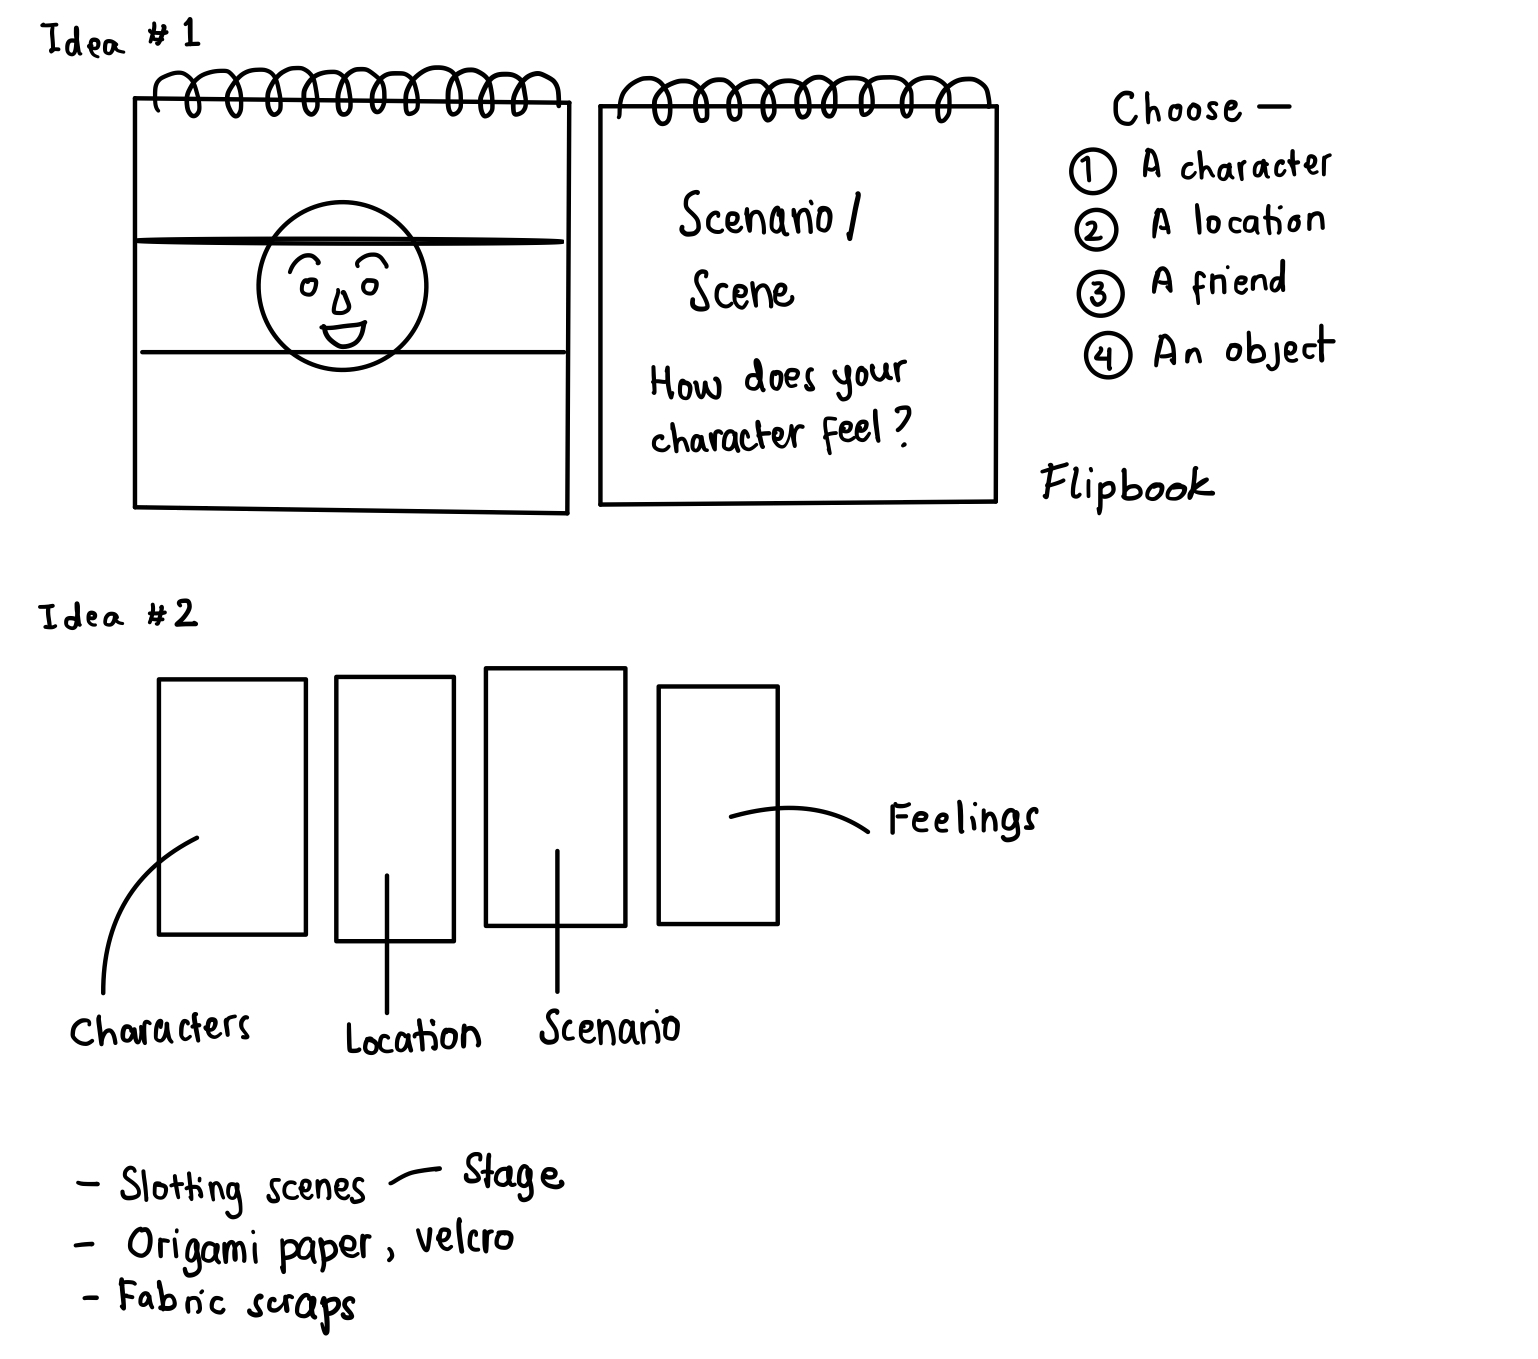 Idea #1
Scenario/
Scene
How does your
character feel?
Choose —
① A character
② A location
③ A friend
④ An object
Flipbook
Idea #2
Feelings
Characters
Location
Scenario
- Slotting scenes — Stage
- Origami paper, velcro
- Fabric scraps